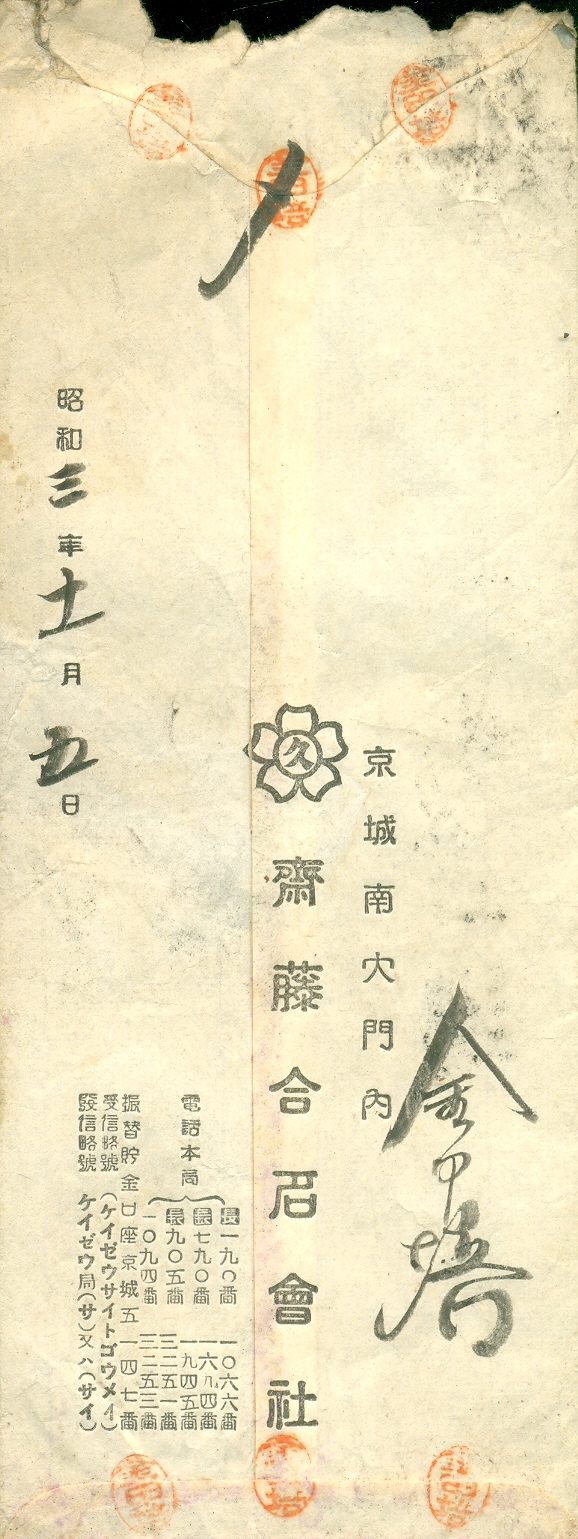 金中塔
京城南大門內
久
齋藤合名會社
電話本局
長一九〇番 一〇六六番
長七九〇番 一六九四番
長九〇五番 一九四五番
二〇九四番 三二五一番
三二五三番
振替貯金口座京城五一四七番
受信略號 (ケイゼウサイトゴウメイ)
發信略號 ケイゼウ局(サ)又ハ(サイ)
昭和三年十一月五日